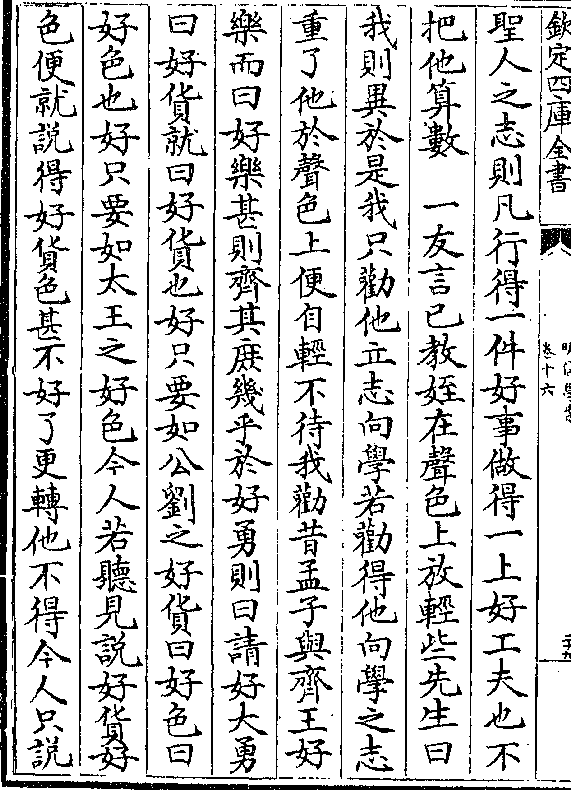 欽定四庫全書
卷十六
聖人之志則凡行得一件好事做得一上好工夫也不
把他算數　一友言已教姪在聲色上放輕些先生曰
我則異於是我只勸他立志向學若勸得他向學之志
重了他於聲色上便自輕不待我勸昔孟子與齊王好
樂而曰好樂甚則齊其庶幾乎於好勇則曰請好大勇
曰好貨就曰好貨也好只要如公劉之好貨曰好色曰
好色也好只要如太王之好色今人若聽見說好貨好
色便就說得好貨色甚不好了更轉他不得今人只說